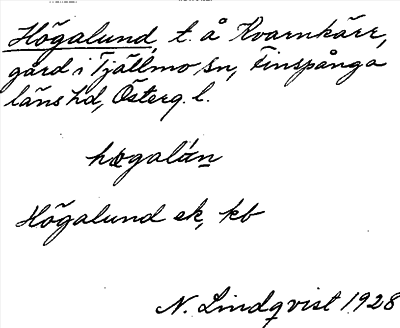 Högalund, t. å Kvarnkärr,
gård i Tjällmo sn, Finspånga
läns hd, Österg. l.
högalún
Högalund ek, kb
N. Lindqvist 1928